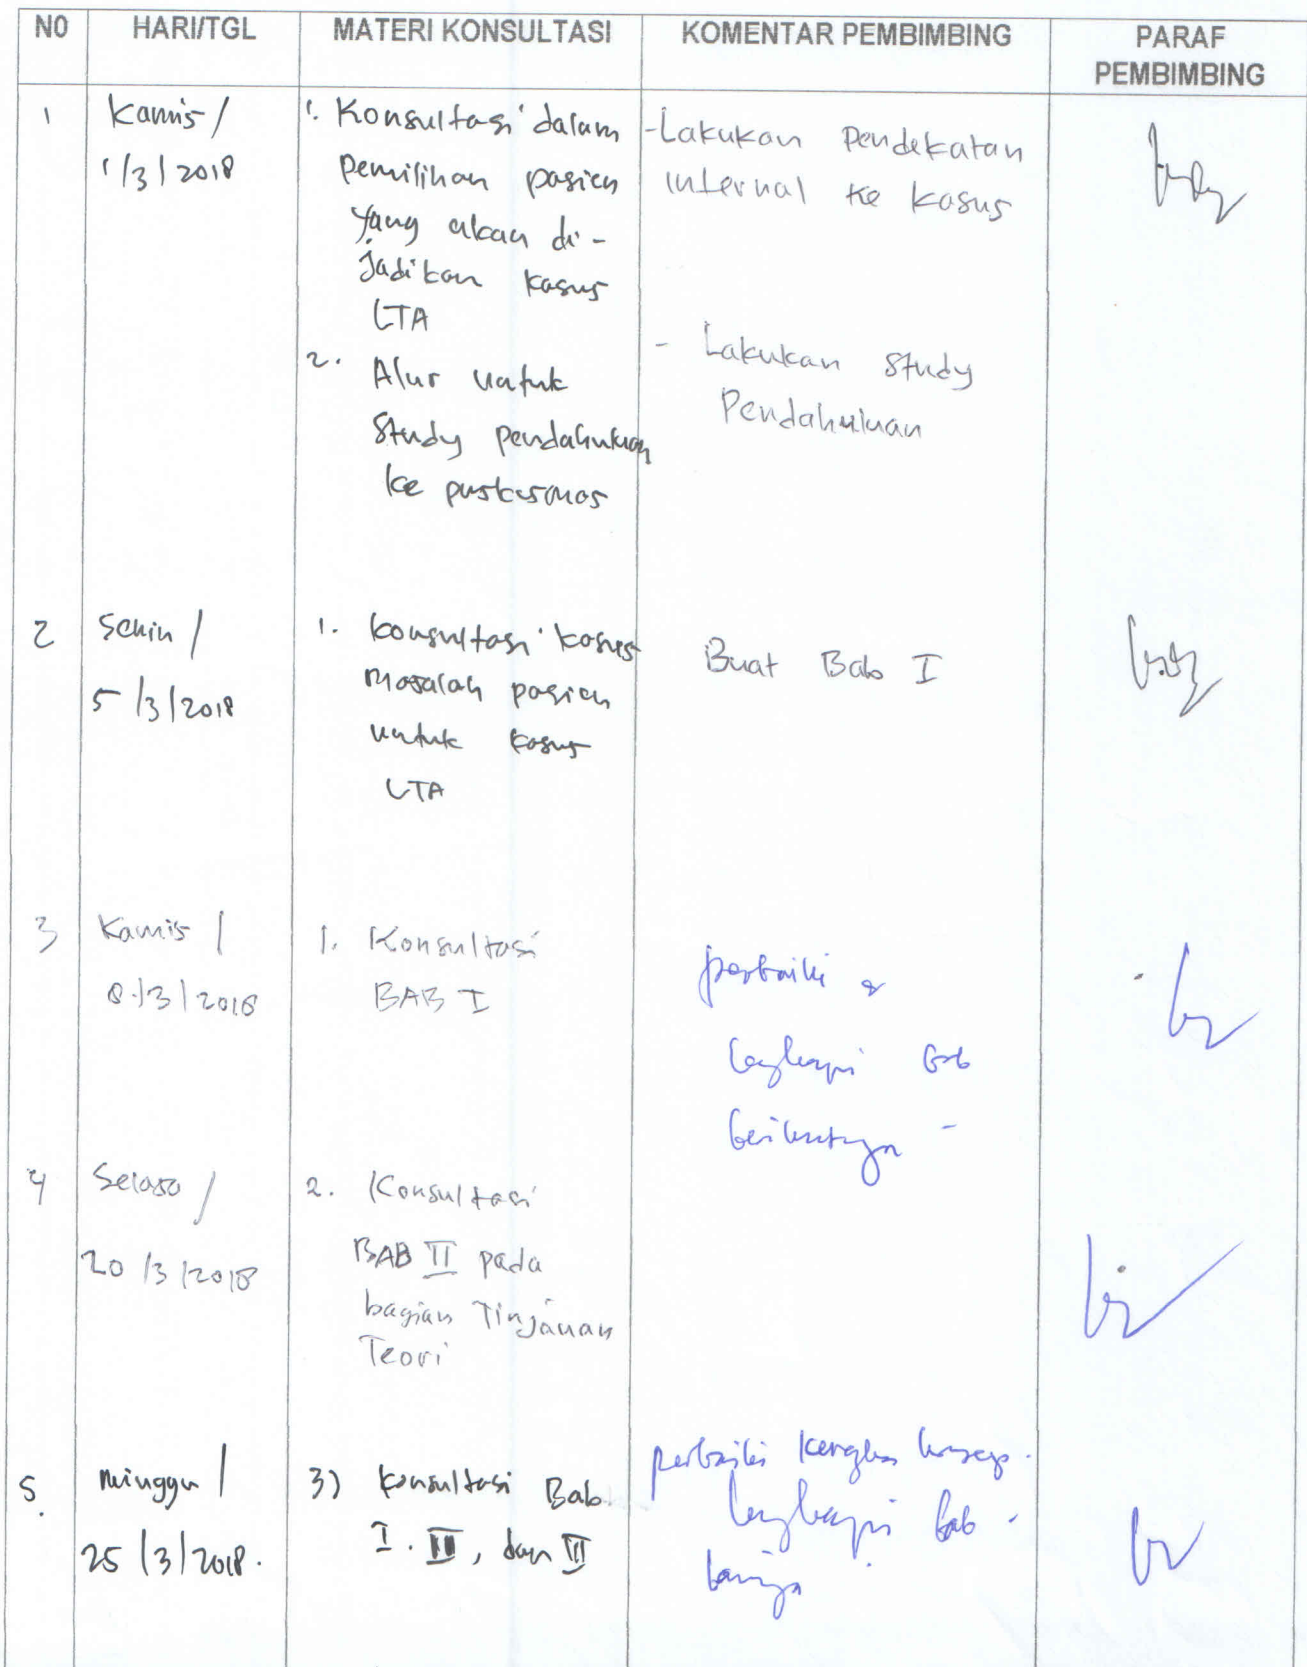 NO HARI/TGL MATERI KONSULTASI KOMENTAR PEMBIMBING PARAF PEMBIMBING
1
Kamis /
1/3/2018
1. Konsultasi dalam
pemilihan pasien
yang akan di-
jadikan kasus
LTA
2. Alur untuk
Study pendahuluan
ke puskesmas
- Lakukan Pendekatan
internal ke kasus
- Lakukan Study
Pendahuluan
2
Senin /
5/3/2018
1. konsultasi kasus
masalah pasien
untuk kasus
LTA
Buat Bab I
3
Kamis /
8/3/2018
1. Konsultasi
BAB I
perbaiki &
lengkapi bab
berikutnya -
4
Selasa /
20/3/2018
2. Konsultasi
BAB II pada
bagian Tinjauan
Teori
5.
minggu /
25/3/2018.
3) konsultasi Bab
I. II, dan III
perbaiki kerangka konsep.
lengkapi bab
lainnya